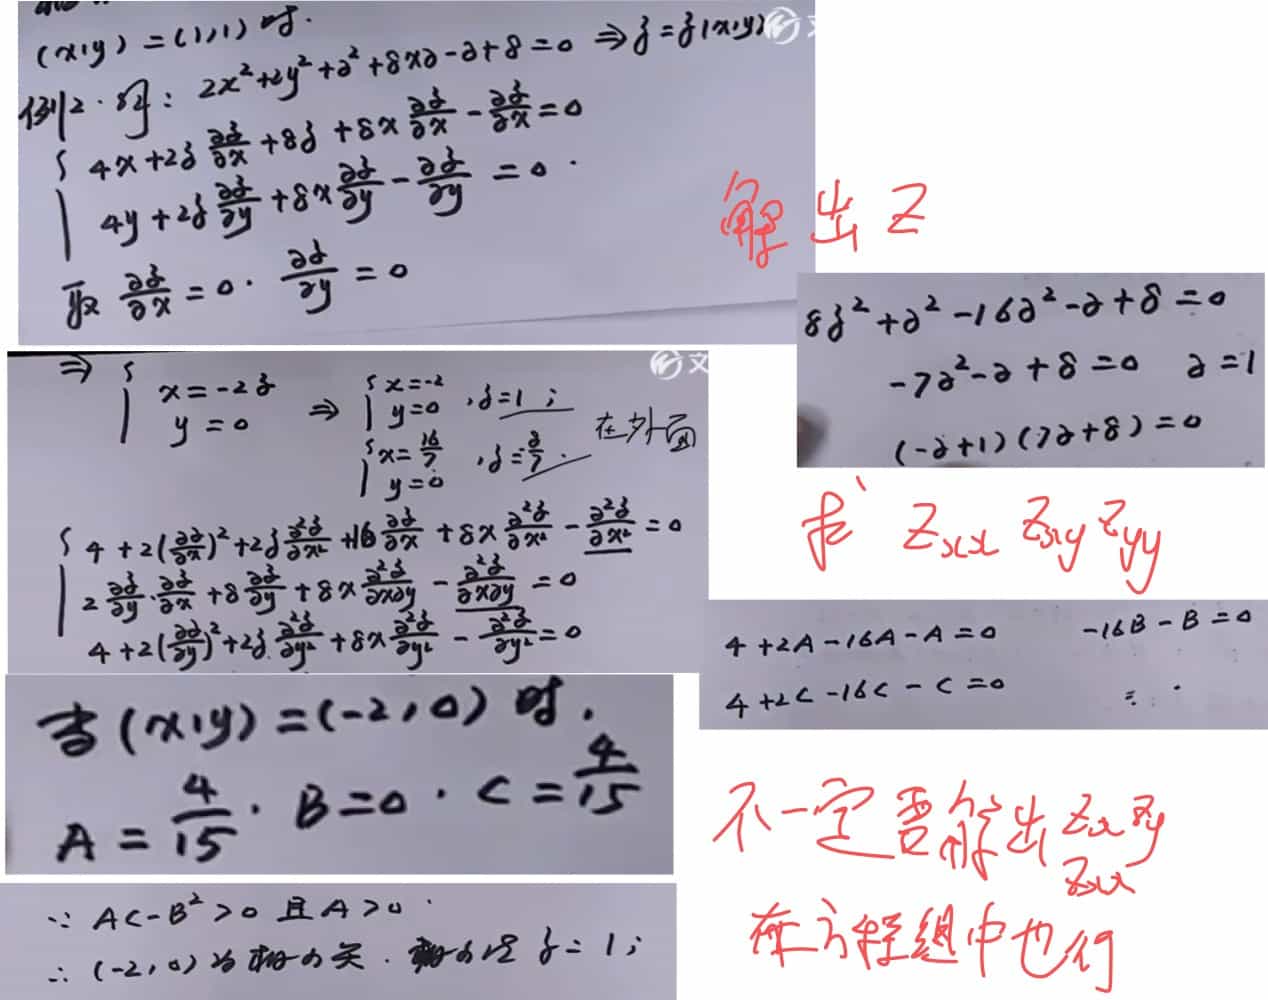 (x,y) = (1,1) 时.
例2. 解: 2x² + 2y² + z² + 8xz - z + 8 = 0 ⇒ z = z(x,y)
文
{ 4x + 2z ∂z/∂x + 8z + 8x ∂z/∂x - ∂z/∂x = 0
4y + 2z ∂z/∂y + 8x ∂z/∂y - ∂z/∂y = 0.
取 ∂z/∂x = 0. ∂z/∂y = 0
解出Z
8z² + z² - 16z² - z + 8 = 0
-7z² - z + 8 = 0 z = 1
(-z+1)(7z+8) = 0
文
⇒ { x = -2z
y = 0
⇒ { x = -2
y = 0 , z = 1 ;
{ x = 16/7
y = 0 , z = -8/7 .
在外面
求 Zxx Zxy Zyy
{ 4 + 2(∂z/∂x)² + 2z ∂²z/∂x² + 16 ∂z/∂x + 8x ∂²z/∂x² - ∂²z/∂x² = 0
2 ∂z/∂y · ∂z/∂x + 8 ∂z/∂y + 8x ∂²z/∂x∂y - ∂²z/∂x∂y = 0
4 + 2(∂z/∂y)² + 2z ∂²z/∂y² + 8x ∂²z/∂y² - ∂²z/∂y² = 0
4 + 2A - 16A - A = 0 -16B - B = 0
4 + 2C - 16C - C = 0
当 (x,y) = (-2,0) 时.
A = 4/15 . B = 0 . C = 4/15
不一定要解出 Zx Zy
Zxx
在方程组中也行
∵ AC - B² > 0 且 A > 0.
∴ (-2,0) 为极小点. 极小值 z = 1;